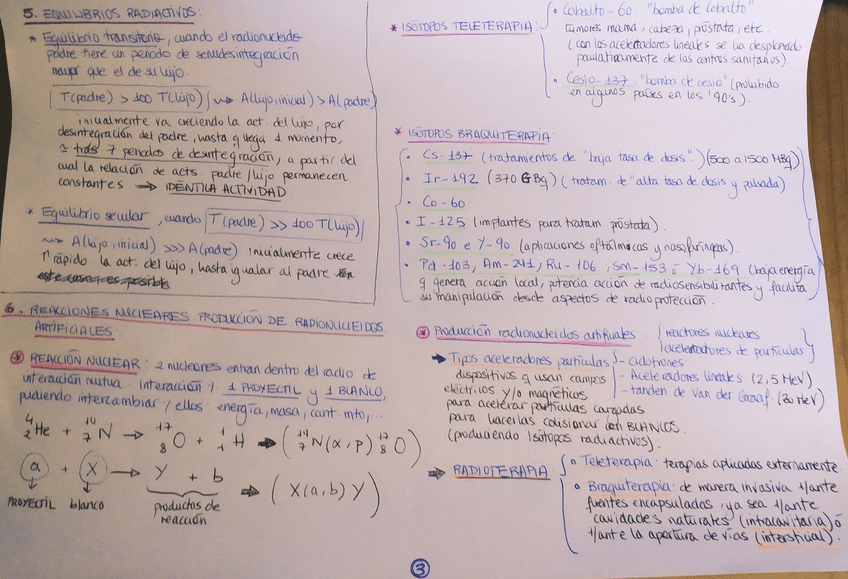 5. EQUILIBRIOS RADIACTIVOS:
* Equilibrio transitorio, cuando el radionucleido
padre tiene un periodo de semidesintegración
mayor que el de su hijo.
T(padre) > 100 T(hijo) ⇝ A(hijo, inicial) > A(padre)
inicialmente va creciendo la act. del hijo, por
desintegración del padre, hasta q llega 1 momento,
≃ tras 7 periodos de desintegración, a partir del
cual la relación de acts. padre/hijo permanecen
constantes → IDÉNTICA ACTIVIDAD
* Equilibrio secular, cuando T(padre) >> 100 T(hijo)
⇝ A(hijo, inicial) >>> A(padre) inicialmente crece
↑ rápido la act. del hijo, hasta igualar al padre. En
este caso es posible
6. REACCIONES NUCLEARES. PRODUCCIÓN DE RADIONUCLEIDOS
ARTIFICIALES:
* REACCIÓN NUCLEAR: 2 nucleones entran dentro del radio de
interacción mutua. Interacción / 1 PROYECTIL y 1 BLANCO,
pudiendo intercambiar / ellos: energía, masa, cant. mto, ...
⁴₂He + ¹⁴₇N → ¹⁷₈O + ¹₁H ➡ (¹⁴₇N(α, p) ¹⁷₈O)
a + X → Y + b ⇒ (X(a,b) Y)
PROYECTIL blanco productos de
reacción
* ISÓTOPOS TELETERAPIA:
• Cobalto-60: "bomba de cobalto"
tumores mama, cabeza, próstata, etc.
(con los aceleradores lineales se ha desplazado
paulatinamente de los centros sanitarios).
• Cesio-137: "bomba de cesio" (prohibido
en algunos países en los '90's).
* ISÓTOPOS BRAQUITERAPIA:
• Cs-137 (tratamientos de "baja tasa de dosis") (500 a 1500 MBq)
• Ir-192 (370 GBq) (tratam. de "alta tasa de dosis y pulsada).
• Co-60
• I-125 (implantes para tratam próstata).
• Sr-90 e Y-90 (aplicaciones oftálmicas y nasofaríngeas).
• Pd-103, Am-241, Ru-106, Sm-153 ó Yb-169 (baja energía
q genera acción local, potencia acción de radiosensibilitantes y facilita
su manipulación desde aspectos de radioprotección.
* Producción radionucleidos artificiales: reactores nucleares
aceleradores de partículas
➡ Tipos aceleradores partículas - ciclotrones
dispositivos q usan campos - Aceleradores lineales (2,5 MeV)
eléctricos y/o magnéticos - tanden de Van der Graaf (30 MeV)
para acelerar partículas cargadas
para hacerlas colisionar con BLANCOS.
(produciendo Isótopos radiactivos).
⇒ RADIOTERAPIA:
• Teleterapia: terapias aplicadas externamente.
• Braquiterapia: de manera invasiva t/ante
fuentes encapsuladas, ya sea t/ante
cavidades naturales (intracavitaria) ó
t/ante la apertura de vías (intersticial).
3